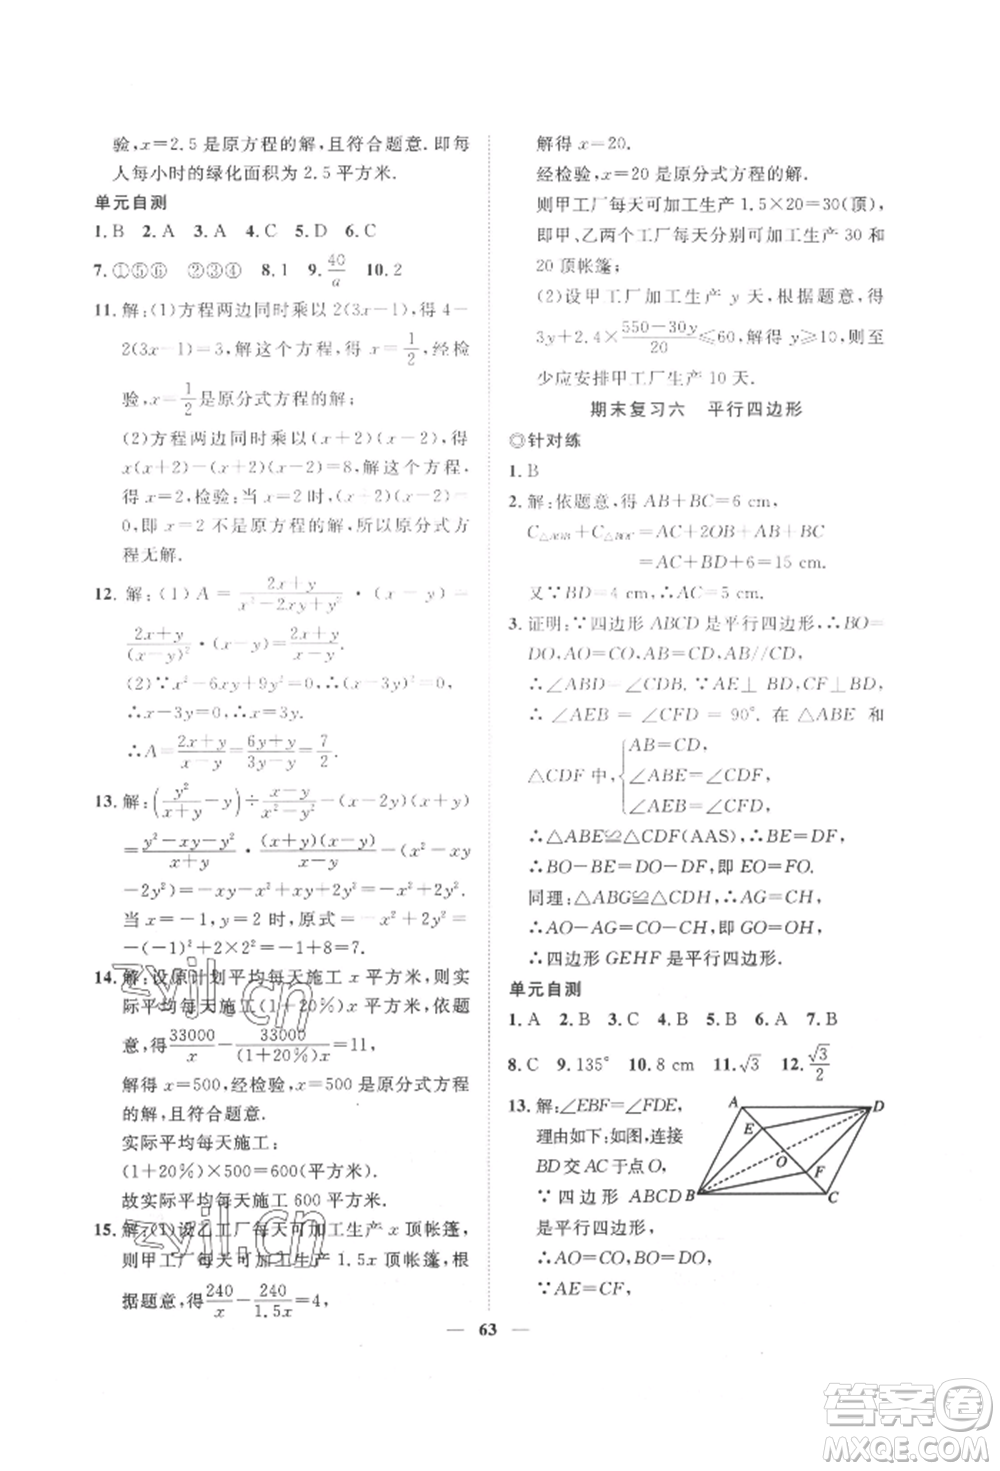 验,x=2.5是原方程的解,且符合题意.即每
人每小时的绿化面积为2.5平方米.
单元自测
1.B 2.A 3.A 4.C 5.D 6.C
7.①⑤⑥ ②③④ 8.1 9.40/a 10.2
11.解:(1)方程两边同时乘以2(3x-1),得4-
2(3x-1)=3,解这个方程,得x=1/2,经检
验,x=1/2是原分式方程的解;
(2)方程两边同时乘以(x+2)(x-2),得
x(x+2)-(x+2)(x-2)=8,解这个方程,
得x=2,检验:当x=2时,(x+2)(x-2)=
0,即x=2不是原方程的解,所以原分式方
程无解.
12.解:(1)A=(2x+y)/(x²-2xy+y²)·(x-y)=
(2x+y)/(x-y)²·(x-y)=(2x+y)/(x-y);
(2)∵x²-6xy+9y²=0,
∴x-3y=0,∴x=3y.
∴A=(2x+y)/(x-y)=(6y+y)/(3y-y)=7/2.
13.解:(y²/(x+y)-y)÷(x-y)/(x²-y²)-(x-2y)(x+y)
=(y²-xy-y²)/(x+y)·(x+y)(x-y)/(x-y)-(x²-xy
-2y²)=-xy-x²+xy+2y²=-x²+2y².
当x=-1,y=2时,原式=-x²+2y²=
-(-1)²+2×2²=-1+8=7.
14.解:设原计划平均每天施工x平方米,则实
际平均每天施工(1+20%)x平方米,依题
意,得33000/x-33000/((1+20%)x)=11,
解得x=500,经检验,x=500是原分式方程
的解,且符合题意.
实际平均每天施工:
(1+20%)×500=600(平方米).
故实际平均每天施工600平方米.
15.解:(1)设乙工厂每天可加工生产x顶帐篷,
则甲工厂每天可加工生产1.5x顶帐篷,根
据题意,得240/x-240/1.5x=4,
解得x=20.
经检验,x=20是原分式方程的解.
则甲工厂每天可加工生产1.5×20=30(顶),
即甲、乙两个工厂每天分别可加工生产30和
20顶帐篷;
(2)设甲工厂加工生产y天,根据题意,得
3y+2.4×(550-30y)/20≤60,解得y≥10,至
少应安排甲工厂生产10天.
期末复习六 平行四边形
◎针对练
1.B
2.解:依题意,得AB+BC=6 cm,
C△AOB+C△BOC=AC+2OB+AB+BC
=AC+BD+6=15 cm.
又∵BD=4 cm,∴AC=5 cm.
3.证明:∵四边形ABCD是平行四边形,∴BO=
DO,AO=CO,AB=CD,AB//CD.
∴∠ABE=∠CDF.∵AE⊥BD,CF⊥BD,
∴∠AEB=∠CFD=90°.在△ABE和
△CDF中,{AB=CD,
∠ABE=∠CDF,
∠AEB=∠CFD,
∴△ABE≌△CDF(AAS),∴BE=DF,
∴BO-BE=DO-DF,即EO=FO.
同理:△ABG≌△CDH,∴AG=CH,
∴AO-AG=CO-CH,即GO=OH,
∴四边形GEHF是平行四边形.
单元自测
1.A 2.B 3.C 4.A 5.B 6.A 7.B
8.C 9.135° 10.8 cm 11.√3 12.√3/2
13.解:∠EBF=∠FDE,
理由如下:如图,连接
BD交AC于点O,
∵四边形ABCD
是平行四边形,
∴AO=CO,BO=DO,
∵AE=CF,
A
D
E
O
F
B
C
— 63 —
zyjl.cn
zyjl.cn
答案卷
MXQE.COM